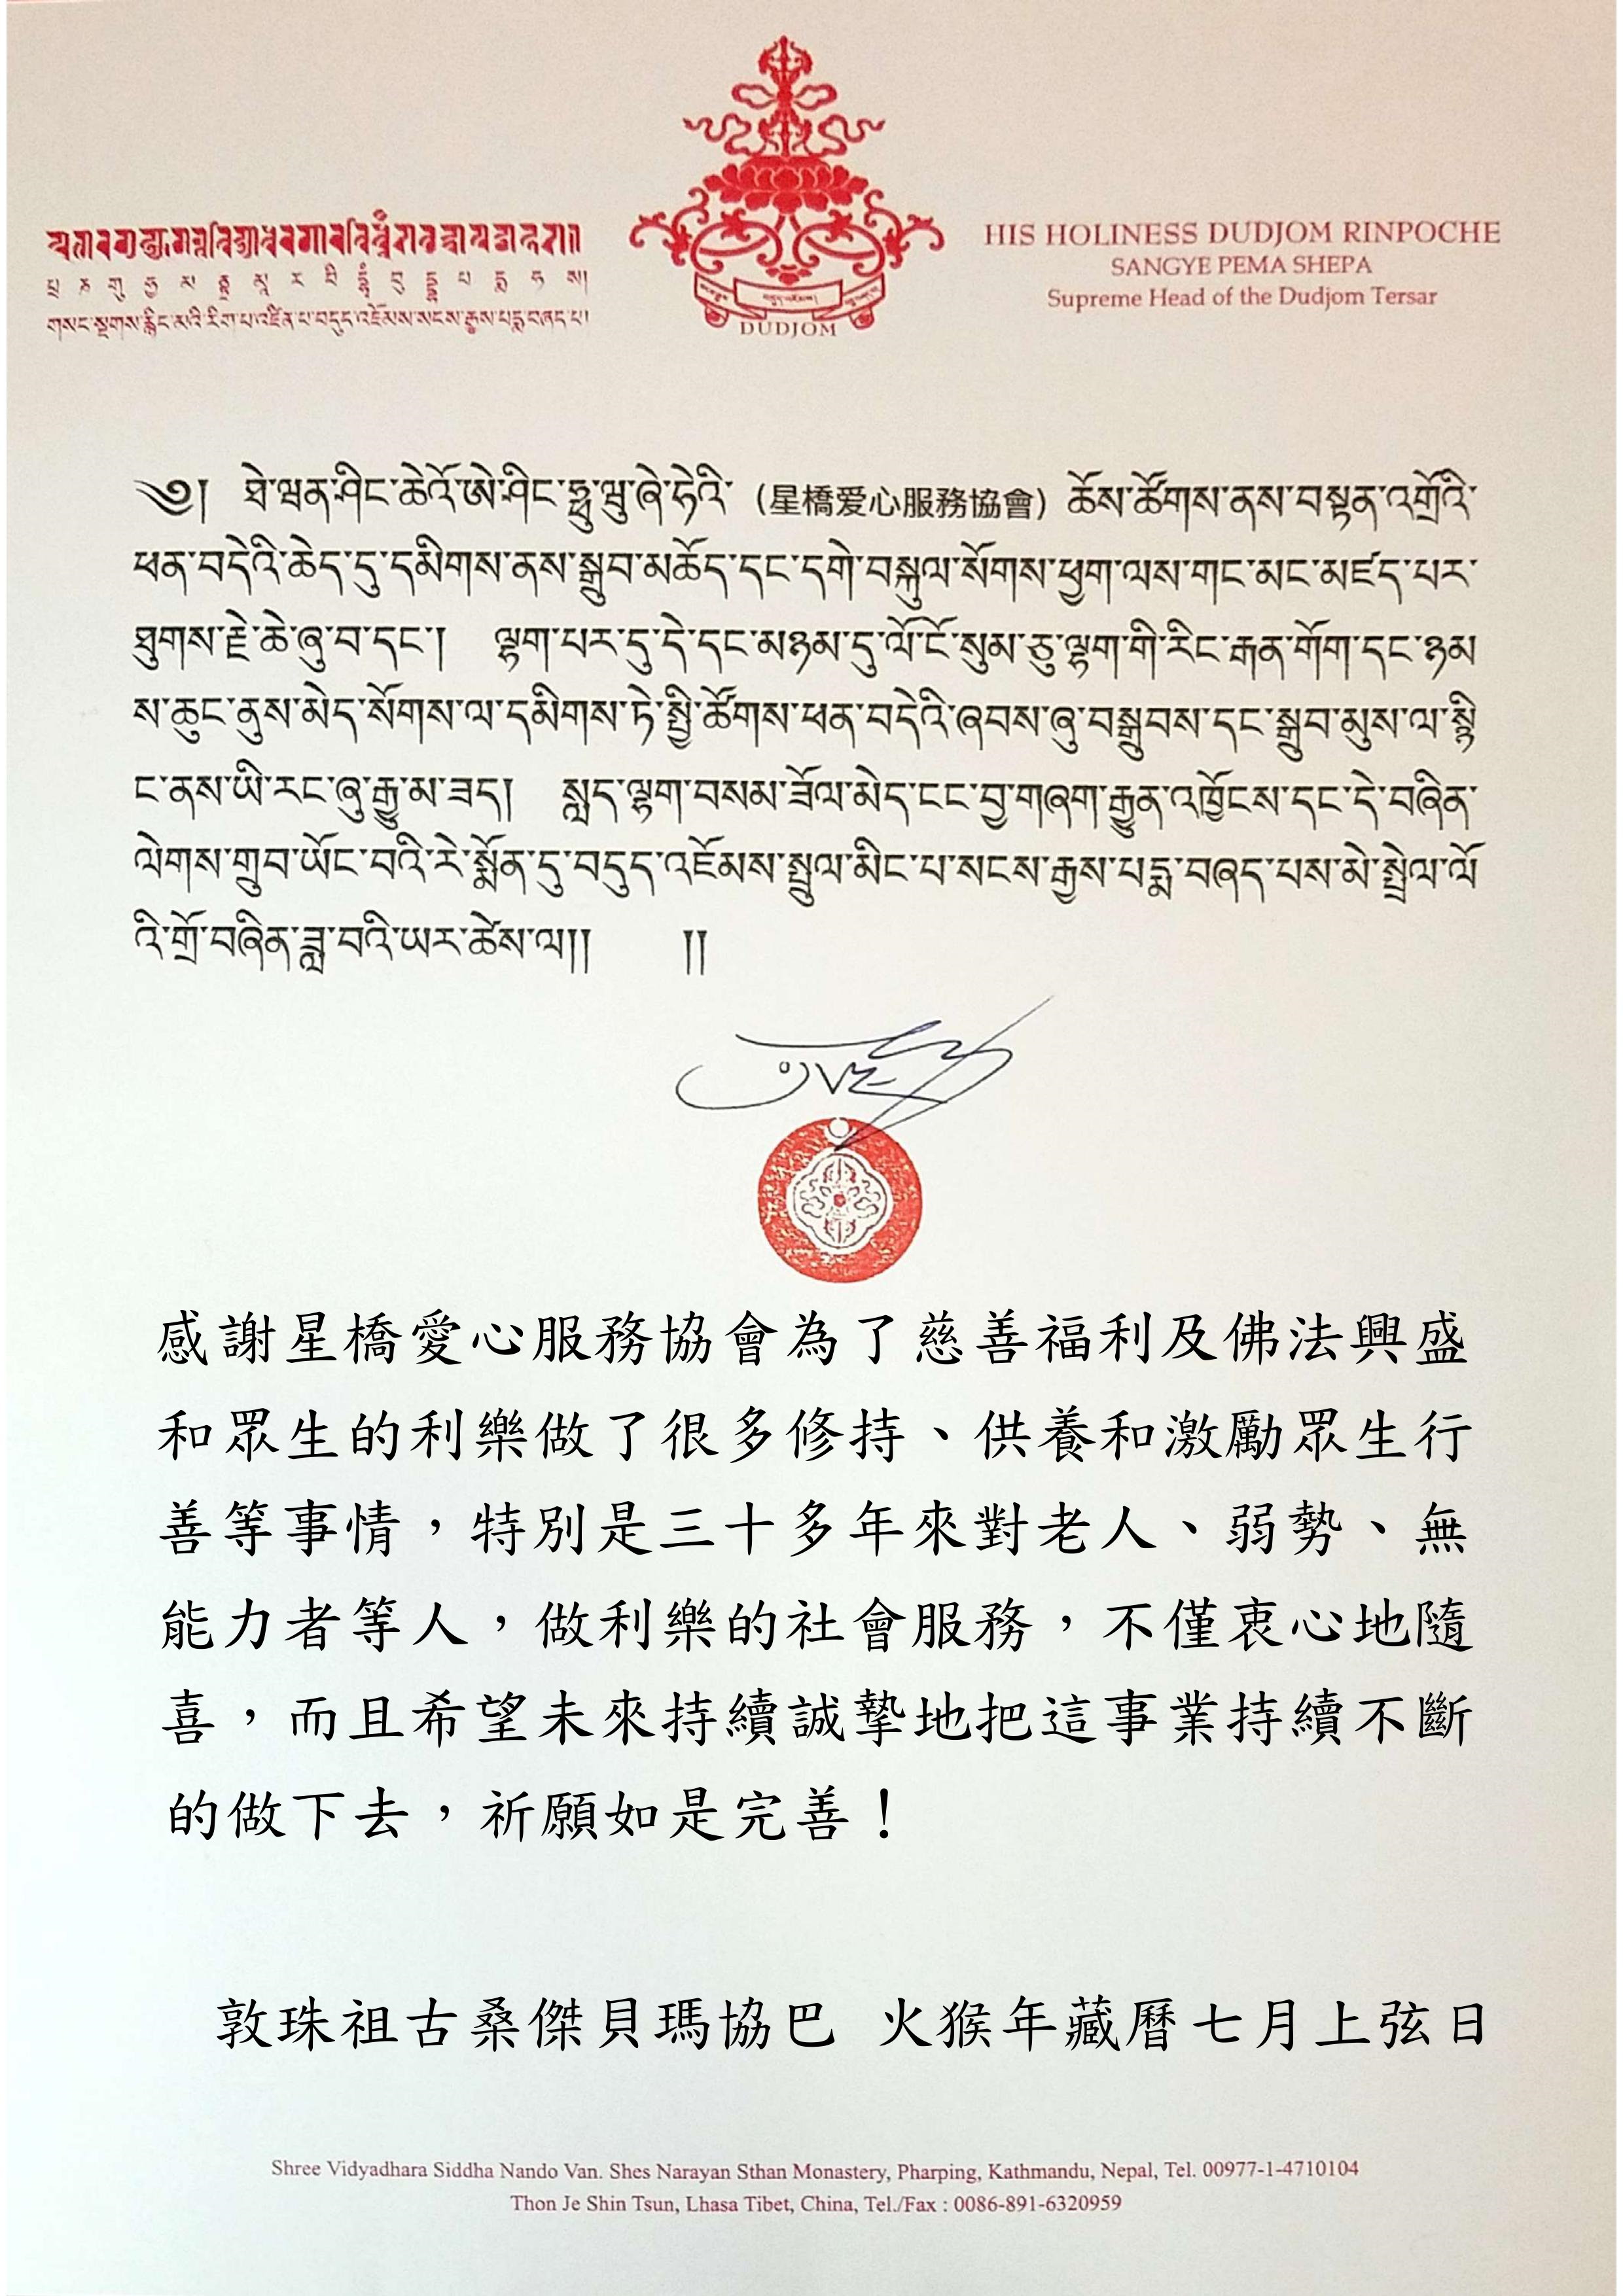 HIS HOLINESS DUDJOM RINPOCHE
SANGYE PEMA SHEPA
Supreme Head of the Dudjom Tersar
གསང་སྔགས་རྙིང་མའི་རིག་པ་འཛིན་པ་བདུད་འཇོམས་སངས་རྒྱས་པདྨ་བཞད་པ།
DUDJOM
༄། ཐེ་ཝན་ཤིང་ཆེའོ་ཨེ་ཤིང་ཧྥུ་ཝུ་ཞེ་ཧེའི་ (星橋爱心服務協會) ཆོས་ཚོགས་ནས་བསྟན་འགྲོའི་
ཕན་བདེའི་ཆེད་དུ་དམིགས་ནས་སྒྲུབ་མཆོད་དང་དགེ་བསྐུལ་སོགས་ཕྱག་ལས་གང་མང་མཛད་པར་
ཐུགས་རྗེ་ཆེ་ཞུ་བ་དང་། ལྷག་པར་དུ་དེ་དང་མཉམ་དུ་ལོ་ངོ་སུམ་ཅུ་ལྷག་གི་རིང་རྒན་གོག་དང་ཉམ
ས་ཆུང་ནུས་མེད་སོགས་ལ་དམིགས་ཏེ་སྤྱི་ཚོགས་ཕན་བདེའི་ཞབས་ཞུ་བསྒྲུབས་དང་སྒྲུབ་མུས་ལ་སྙི
ང་ནས་ཡི་རང་ཞུ་རྒྱུ་མ་ཟད། སླད་ལྷག་བསམ་ཟོལ་མེད་ངང་བྱ་གཞག་རྒྱུན་འཁྱོངས་དང་དེ་བཞིན་
ལེགས་གྲུབ་ཡོང་བའི་རེ་སྨོན་དུ་བདུད་འཇོམས་སྤྲུལ་མིང་པ་སངས་རྒྱས་པདྨ་བཞད་པས་མེ་སྤྲེལ་ལོ
འི་གྲོ་བཞིན་ཟླ་བའི་ཡར་ཚེས་ལ།། །།
感謝星橋愛心服務協會為了慈善福利及佛法興盛
和眾生的利樂做了很多修持、供養和激勵眾生行
善等事情，特別是三十多年來對老人、弱勢、無
能力者等人，做利樂的社會服務，不僅衷心地隨
喜，而且希望未來持續誠摯地把這事業持續不斷
的做下去，祈願如是完善！
敦珠祖古桑傑貝瑪協巴 火猴年藏曆七月上弦日
Shree Vidyadhara Siddha Nando Van. Shes Narayan Sthan Monastery, Pharping, Kathmandu, Nepal, Tel. 00977-1-4710104
Thon Je Shin Tsun, Lhasa Tibet, China, Tel./Fax : 0086-891-6320959